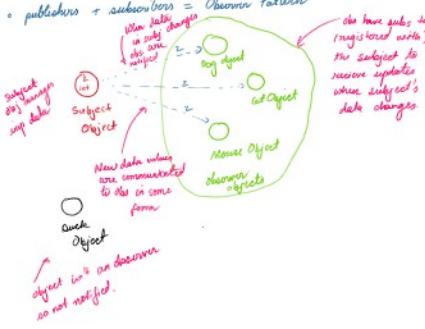 • publishers + subscribers = Observer Pattern
When data
in subj changes
obs are
notified
obs have subs to
(registered with)
the subject to
recieve updates
when subject's
data changes.
2
Dog Object
2
int
Subject
Object
Subject
obj manages
data
2
Cat Object
2
Mouse Object
observer
objects
New data values
are communicated
to obs in some
form
Duck
Object
object isn't an observer
so not notified.